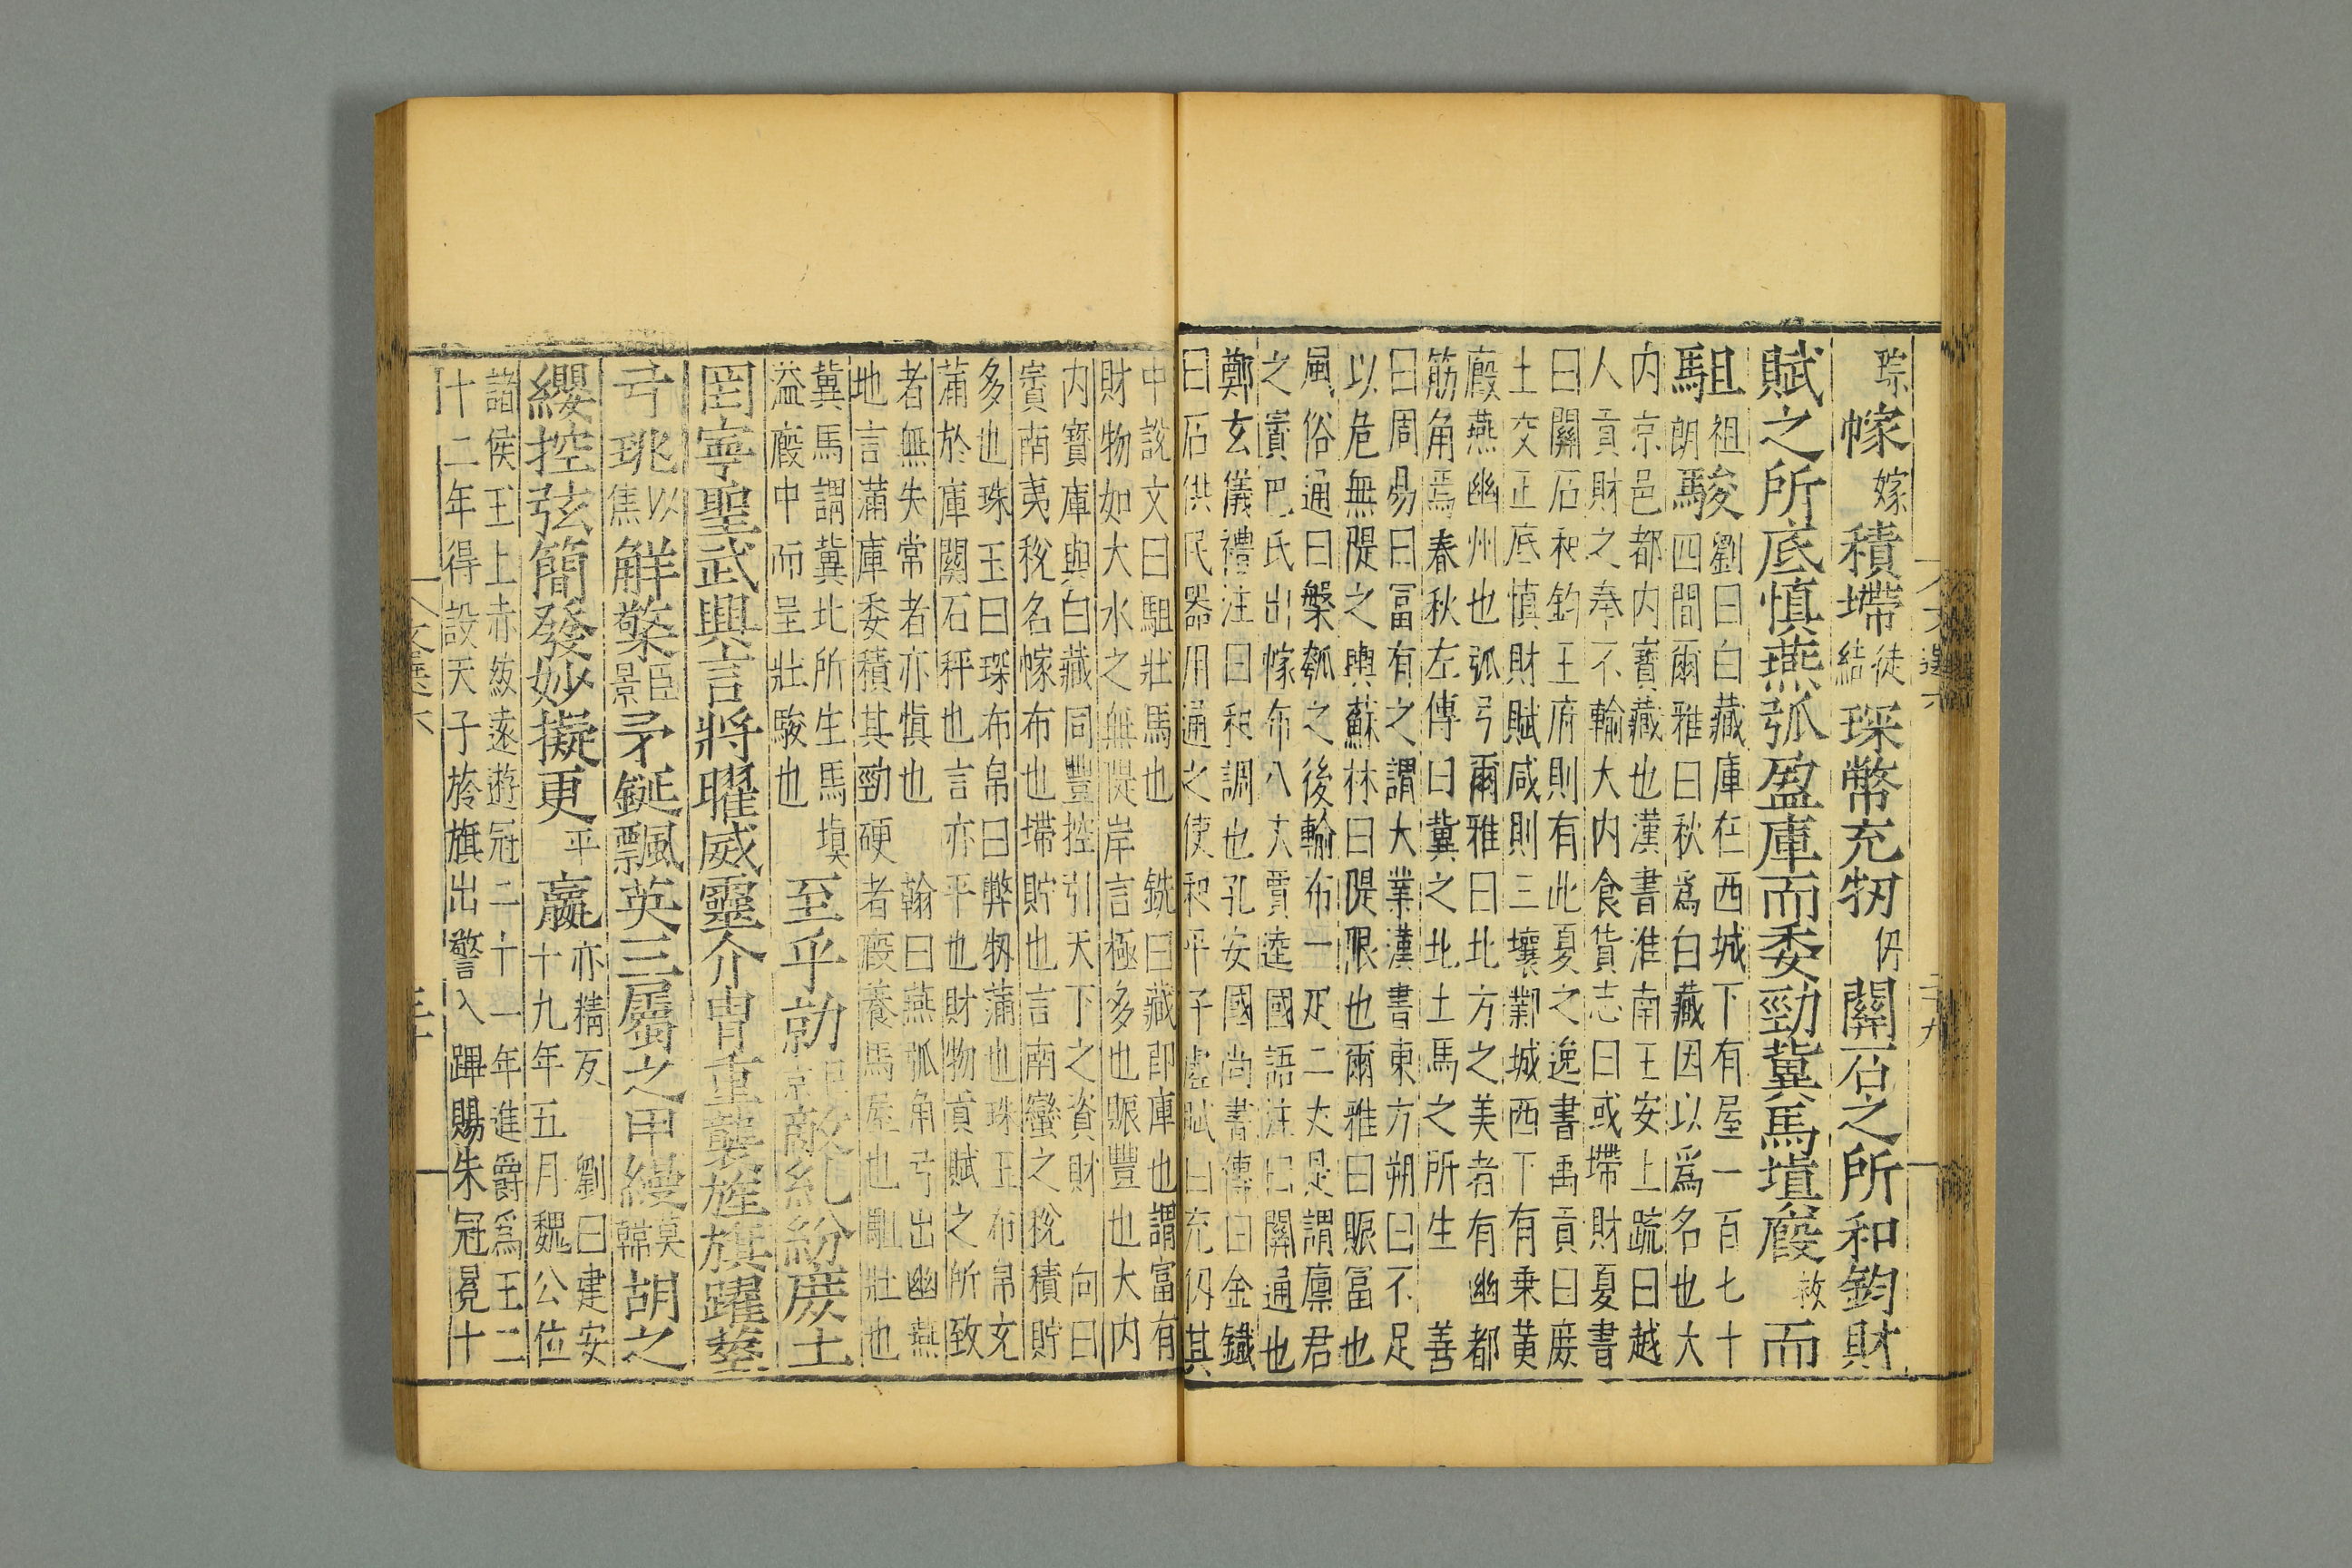 琮幏嫁積㙞徒結琛幣充牣仞關石之所和鈞財
賦之所底慎燕弧盈庫而委勁冀馬填廄救而
駔祖朗駿劉曰白藏庫在西城下有屋一百七十
四間爾雅曰秋爲白藏因以爲名也大
内京邑都内寳藏也漢書淮南王安上疏曰越
人貢財之奉不輸大内食貨志曰或㙞財夏書
曰關石和鈞王府則有此夏之逸書禹貢曰庶
土交正底慎財賦咸則三壤鄴城西下有乗黄
廄燕幽州也弧弓爾雅曰北方之美者有幽都
筋角焉春秋左傳曰冀之北土馬之所生 善
曰周易曰冨有之謂大業漢書東方朔曰不足
以危無隄之輿蘇林曰隄限也爾雅曰賑冨也
風俗通曰槃瓠之後輸布一疋二丈是謂廩君
之賨巴氏出幏布八丈賈逵國語注曰關通也
鄭玄儀禮注曰和調也孔安國尚書傳曰金鐵
曰石供民器用通之使和平子虚賦曰充仞其
文選六
二十九
中說文曰駔壯馬也 銑曰藏即庫也謂富有
財物如大水之無隄岸言極多也賑豐也大内
内寳庫與白藏同豐控引天下之資財 向曰
賨南夷稅名幏布也㙞貯也言南蠻之稅積貯
多也珠玉曰琛布帛曰弊牣蒲也珠玉布帛充
蒲於庫關石秤也言亦平也財物貢賦之所致
者無失常者亦愼也 翰曰燕弧角弓出幽燕
地言蒲庫委積其勁硬者廄養馬屋也駔壯也
冀馬謂冀北所生馬填
溢廄中而呈壯駿也 至乎勍巨京敵糺紛庶土
罔寧聖武興言將曜威靈介胄重襲旌旗躍莖
弓珧以焦解檠巨景矛鋋飄英三屬之甲縵莫幹胡之
纓控弦簡發妙擬更平嬴亦精反 劉曰建安
十九年五月魏公位
諸侯王上赤紱遠遊冠二十一年進爵爲王二
十二年得設天子旍旗出警入蹕賜朱冠冕十
文選六
三十